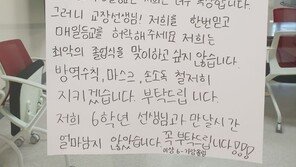 그러니 교장선생님! 저희를 한번믿고
매일등교를 허락해주세요 저희는
최악의 졸업식을 맞이하고 싶지 않습니다.
방역수칙, 마스크, 손소독 철저히
지키겠습니다. 부탁드립니다.
저희 6학년 선생님과 만날시간
얼마남지 않았습니다. 꼭 부탁드립니다